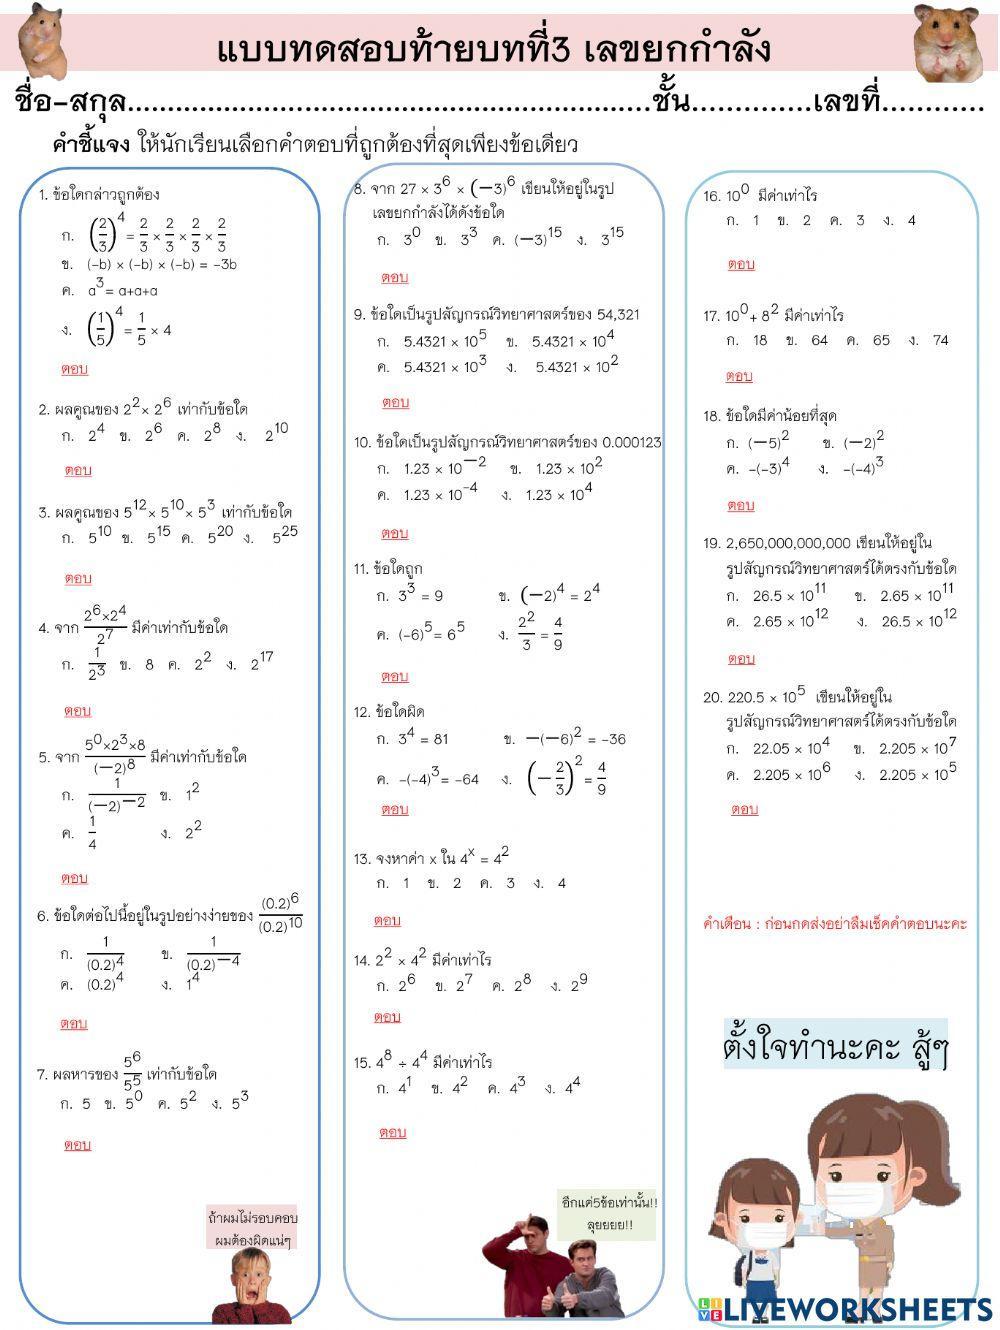 แบบทดสอบท้ายบทที่3 เลขยกกำลัง
ชื่อ-สกุล.................................................................ชั้น...............เลขที่.............
คำชี้แจง ให้นักเรียนเลือกคำตอบที่ถูกต้องที่สุดเพียงข้อเดียว
1. ข้อใดกล่าวถูกต้อง
ก. (2/3)^4 = 2/3 × 2/3 × 2/3 × 2/3
ข. (-b) × (-b) × (-b) = -3b
ค. a^3 = a+a+a
ง. (1/5)^4 = 1/5 × 4
ตอบ
2. ผลคูณของ 2^2 × 2^6 เท่ากับข้อใด
ก. 2^4 ข. 2^6 ค. 2^8 ง. 2^10
ตอบ
3. ผลคูณของ 5^12 × 5^10 × 5^3 เท่ากับข้อใด
ก. 5^10 ข. 5^15 ค. 5^20 ง. 5^25
ตอบ
4. จาก (2^6×2^4)/2^7 มีค่าเท่ากับข้อใด
ก. 1/2^3 ข. 8 ค. 2^2 ง. 2^17
ตอบ
5. จาก (5^0×2^3×8)/(-2)^8 มีค่าเท่ากับข้อใด
ก. 1/(-2)^-2 ข. 1^2
ค. 1/4 ง. 2^2
ตอบ
6. ข้อใดต่อไปนี้อยู่ในรูปอย่างง่ายของ (0.2)^6/(0.2)^10
ก. 1/(0.2)^4 ข. 1/(0.2)^-4
ค. (0.2)^4 ง. 1^4
ตอบ
7. ผลหารของ 5^6/5^5 เท่ากับข้อใด
ก. 5 ข. 5^0 ค. 5^2 ง. 5^3
ตอบ
ถ้าผมไม่รอบคอบ
ผมต้องผิดแน่ๆ
8. จาก 27 × 3^6 × (-3)^6 เขียนให้อยู่ในรูป
เลขยกกำลังได้ดังข้อใด
ก. 3^0 ข. 3^3 ค. (-3)^15 ง. 3^15
ตอบ
9. ข้อใดเป็นรูปสัญกรณ์วิทยาศาสตร์ของ 54,321
ก. 5.4321 × 10^5 ข. 5.4321 × 10^4
ค. 5.4321 × 10^3 ง. 5.4321 × 10^2
ตอบ
10. ข้อใดเป็นรูปสัญกรณ์วิทยาศาสตร์ของ 0.000123
ก. 1.23 × 10^-2 ข. 1.23 × 10^2
ค. 1.23 × 10^-4 ง. 1.23 × 10^4
ตอบ
11. ข้อใดถูก
ก. 3^3 = 9 ข. (-2)^4 = 2^4
ค. (-6)^5 = 6^5 ง. 2^2/3 = 4/9
ตอบ
12. ข้อใดผิด
ก. 3^4 = 81 ข. -(-6)^2 = -36
ค. -(-4)^3 = -64 ง. (-2/3)^2 = 4/9
ตอบ
13. จงหาค่า x ใน 4^x = 4^2
ก. 1 ข. 2 ค. 3 ง. 4
ตอบ
14. 2^2 × 4^2 มีค่าเท่าไร
ก. 2^6 ข. 2^7 ค. 2^8 ง. 2^9
ตอบ
15. 4^8 ÷ 4^4 มีค่าเท่าไร
ก. 4^1 ข. 4^2 ค. 4^3 ง. 4^4
ตอบ
อีกแค่5ข้อเท่านั้น!!
ลุยยยย!!
16. 10^0 มีค่าเท่าไร
ก. 1 ข. 2 ค. 3 ง. 4
ตอบ
17. 10^0 + 8^2 มีค่าเท่าไร
ก. 18 ข. 64 ค. 65 ง. 74
ตอบ
18. ข้อใดมีค่าน้อยที่สุด
ก. (-5)^2 ข. (-2)^2
ค. -(-3)^4 ง. -(-4)^3
ตอบ
19. 2,650,000,000,000 เขียนให้อยู่ใน
รูปสัญกรณ์วิทยาศาสตร์ได้ตรงกับข้อใด
ก. 26.5 × 10^11 ข. 2.65 × 10^11
ค. 2.65 × 10^12 ง. 26.5 × 10^12
ตอบ
20. 220.5 × 10^5 เขียนให้อยู่ใน
รูปสัญกรณ์วิทยาศาสตร์ได้ตรงกับข้อใด
ก. 22.05 × 10^4 ข. 2.205 × 10^7
ค. 2.205 × 10^6 ง. 2.205 × 10^5
ตอบ
คำเตือน : ก่อนกดส่งอย่าลืมเช็คคำตอบนะคะ
ตั้งใจทำนะคะ สู้ๆ
LIVEWORKSHEETS